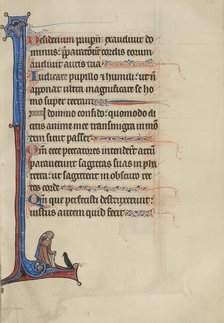 Desiderium paupm̄ exaudivit do
minus: p̄paratōem cordis eorum
audivit auris tua
Iudicare pupillo ⁊ humili: ut nō
apponat ultra magnificare se ho
mo super terram
In domino confido: quomodo di
citis anime mee transmigra in mon
tem sicut passer
Qm̄ ecce peccatores intenderūt arcū
paraverunt sagittas suas in pha
retra: ut sagittent in obscuro re
ctos corde
Qm̄ que perfecisti destruxerunt:
iustus autem quid fecit